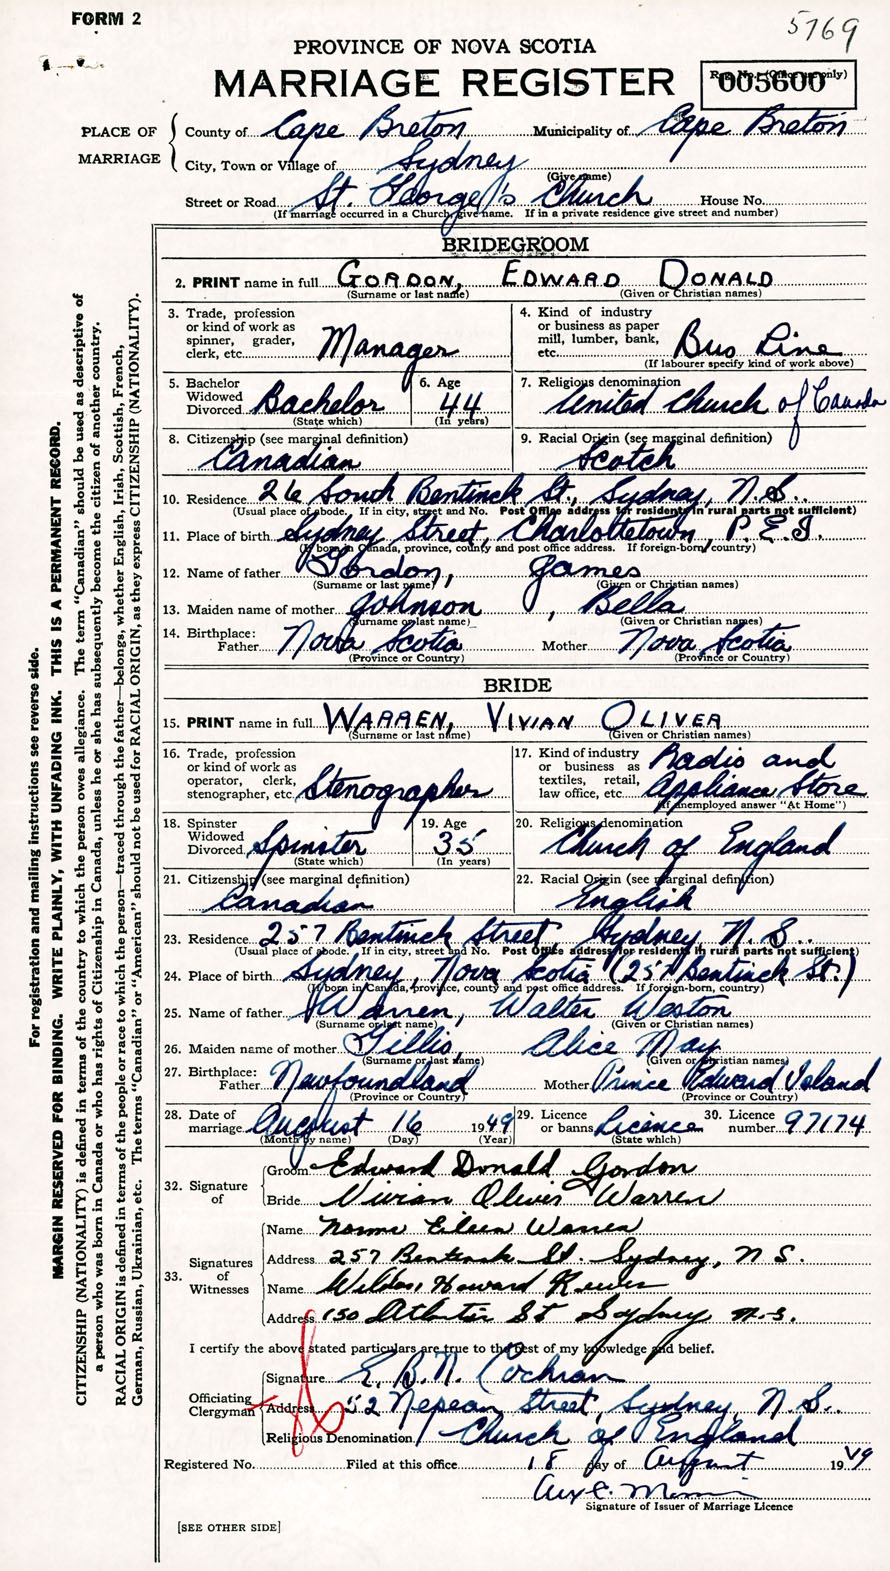 FORM 2
5769
PROVINCE OF NOVA SCOTIA
MARRIAGE REGISTER
Reg. No. (Office use only)
005600
PLACE OF MARRIAGE
County of Cape Breton Municipality of Cape Breton
City, Town or Village of Sydney
(Give name)
Street or Road St. George's Church House No.
(If marriage occurred in a Church, give name. If in a private residence give street and number)
BRIDEGROOM
2. PRINT name in full GORDON, EDWARD DONALD
(Surname or last name) (Given or Christian names)
3. Trade, profession or kind of work as spinner, grader, clerk, etc. Manager
4. Kind of industry or business as paper mill, lumber, bank, etc. Bus Line
(If labourer specify kind of work above)
5. Bachelor Widowed Divorced Bachelor
(State which)
6. Age 44
(In years)
7. Religious denomination United Church of Canada
8. Citizenship (see marginal definition) Canadian
9. Racial Origin (see marginal definition) Scotch
10. Residence 26 South Bentinck St., Sydney, N.S.
(Usual place of abode. If in city, street and No. Post Office address for residents in rural parts not sufficient)
11. Place of birth Sydney Street, Charlottetown, P.E.I.
(If born in Canada, province, county and post office address. If foreign-born, country)
12. Name of father Gordon, James
(Surname or last name) (Given or Christian names)
13. Maiden name of mother Johnson, Bella
(Surname or last name) (Given or Christian names)
14. Birthplace: Father Nova Scotia Mother Nova Scotia
(Province or Country) (Province or Country)
BRIDE
15. PRINT name in full WARREN, VIVIAN OLIVER
(Surname or last name) (Given or Christian names)
16. Trade, profession or kind of work as operator, clerk, stenographer, etc. Stenographer
17. Kind of industry or business as textiles, retail, law office, etc. Radio and Appliance Store
(If unemployed answer "At Home")
18. Spinster Widowed Divorced Spinster
(State which)
19. Age 35
(In years)
20. Religious denomination Church of England
21. Citizenship (see marginal definition) Canadian
22. Racial Origin (see marginal definition) English
23. Residence 257 Bentinck Street, Sydney N.S.
(Usual place of abode. If in city, street and No. Post Office address for residents in rural parts not sufficient)
24. Place of birth Sydney, Nova Scotia (257 Bentinck St.)
(If born in Canada, province, county and post office address. If foreign-born, country)
25. Name of father Warren, Walter Weston
(Surname or last name) (Given or Christian names)
26. Maiden name of mother Gillis, Alice May
(Surname or last name) (Given or Christian names)
27. Birthplace: Father Newfoundland Mother Prince Edward Island
(Province or Country) (Province or Country)
28. Date of marriage August 16 1949
(Month by name) (Day) (Year)
29. Licence or banns Licence
(State which)
30. Licence number 97174
32. Signature of
Groom Edward Donald Gordon
Bride Vivian Oliver Warren
33. Signatures of Witnesses
Name Norma Eileen Warren
Address 257 Bentinck St. Sydney, N.S.
Name Howard
Address 150 Atlantic St Sydney N.S.
I certify the above stated particulars are true to the best of my knowledge and belief.
Officiating Clergyman
Signature E. B. N. Cochran
Address 52 Nepean Street, Sydney, N.S.
Religious Denomination Church of England
Registered No. Filed at this office 18 day of August 1949
Signature of Issuer of Marriage Licence
[SEE OTHER SIDE]
For registration and mailing instructions see reverse side.
MARGIN RESERVED FOR BINDING. WRITE PLAINLY, WITH UNFADING INK. THIS IS A PERMANENT RECORD.
CITIZENSHIP (NATIONALITY) is defined in terms of the country to which the person owes allegiance. The term "Canadian" should be used as descriptive of
a person who was born in Canada or who has rights of Citizenship in Canada, unless he or she has subsequently become the citizen of another country.
RACIAL ORIGIN is defined in terms of the people or race to which the person—traced through the father—belongs, whether English, Irish, Scottish, French,
German, Russian, Ukrainian, etc. The terms "Canadian" or "American" should not be used for RACIAL ORIGIN, as they express CITIZENSHIP (NATIONALITY).